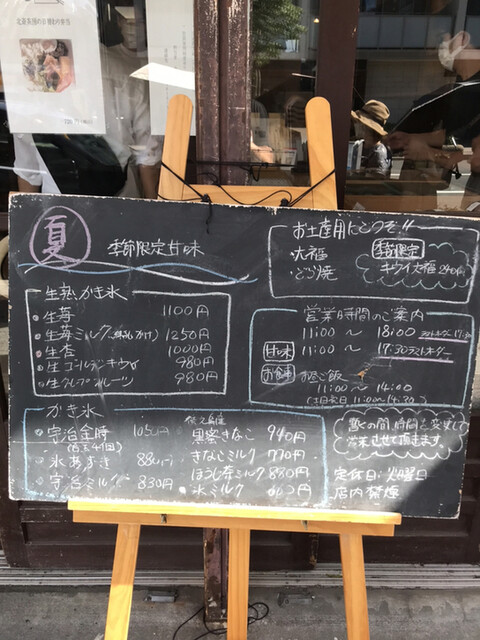 夏
季節限定甘味
生氷かき氷
生苺 1100円
生苺ミルク 1250円
生杏 1000円
生ゴールデンキウイ 980円
生グレープフルーツ 980円
かき氷
宇治金時 1050円
氷あずき 880円
宇治ミルク 830円
黒蜜きなこ 940円
きなこミルク 770円
ほうじ茶ミルク 880円
氷ミルク 600円
お土産用にどうぞ!!
・大福
・どら焼
季節限定
キウイ大福 290円
営業時間のご案内
11:00 〜 18:00 ラストオーダー17:30
甘味 11:00 〜 17:30 ラストオーダー
お食事 お昼ご飯
11:00 〜 14:00
(土日祝日 11:00〜14:30)
暫くの間、時間を変更して
営業させて頂きます。
定休日:火曜日
店内禁煙